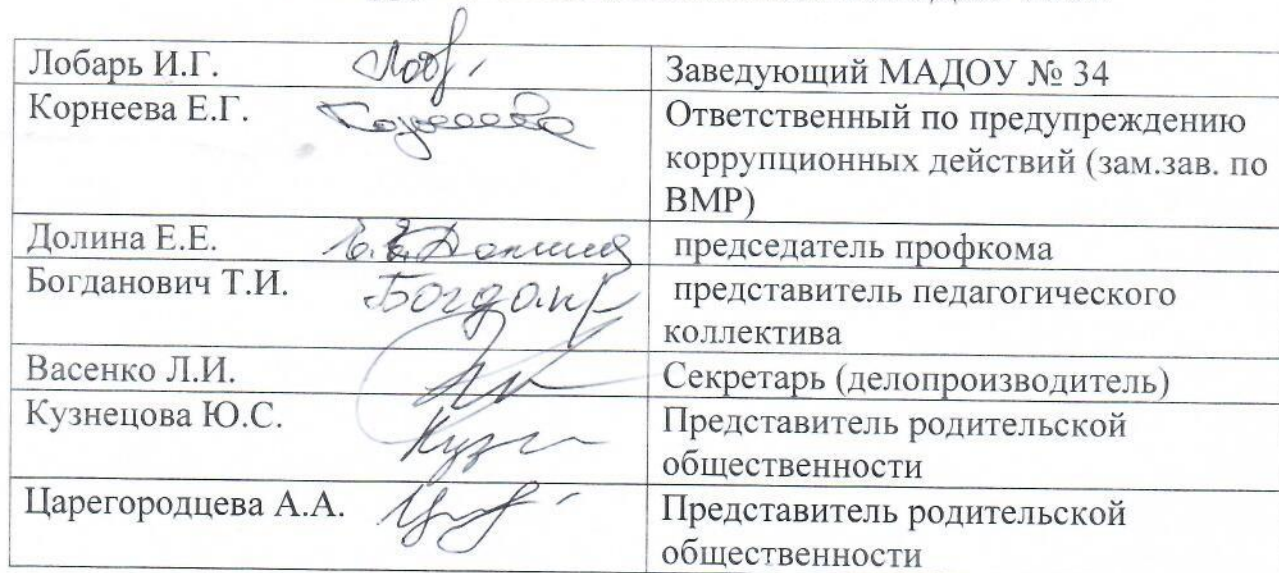 Лобарь И.Г. Заведующий МАДОУ № 34
Корнеева Е.Г. Корнеева Ответственный по предупреждению
коррупционных действий (зам.зав. по
ВМР)
Долина Е.Е. Е.Е. Долина председатель профкома
Богданович Т.И. представитель педагогического
коллектива
Васенко Л.И. Секретарь (делопроизводитель)
Кузнецова Ю.С. Представитель родительской
общественности
Царегородцева А.А. Представитель родительской
общественности